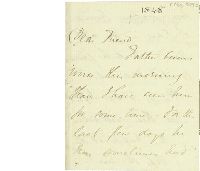 1848
Dear Friend
Father seems
worse this morning
than I have seen him
for some time. For the
last few days he
has sometimes had